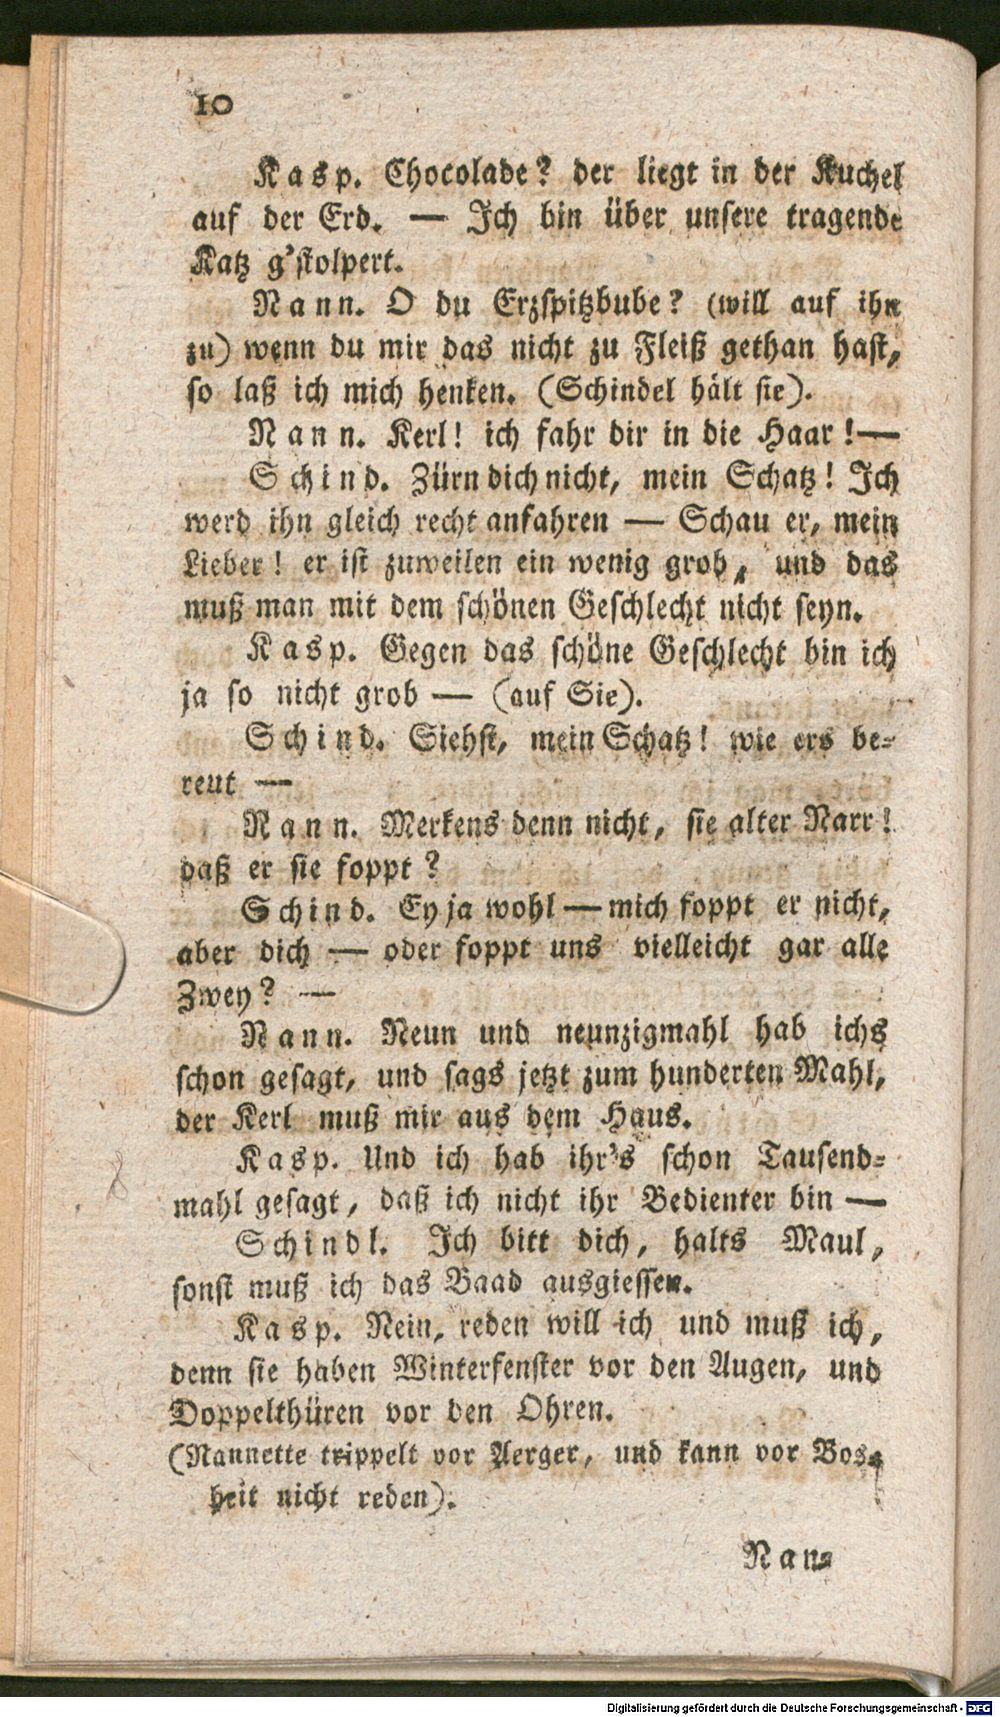 10
Kasp. Chocolade? der liegt in der Kuchel
auf der Erd. — Ich bin über unsere tragende
Katz g'stolpert.
Nann. O du Erzspitzbube? (will auf ihn
zu) wenn du mir das nicht zu Fleiß gethan hast,
so laß ich mich henken. (Schindel hält sie).
Nann. Kerl! ich fahr dir in die Haar! —
Schind. Zürn dich nicht, mein Schatz! Ich
werd ihn gleich recht anfahren — Schau er, mein
Lieber! er ist zuweilen ein wenig grob, und das
muß man mit dem schönen Geschlecht nicht seyn.
Kasp. Gegen das schöne Geschlecht bin ich
ja so nicht grob — (auf Sie).
Schind. Siehst, mein Schatz! wie ers be-
reut —
Nann. Merkens denn nicht, sie alter Narr!
daß er sie foppt?
Schind. Ey ja wohl — mich foppt er nicht,
aber dich — oder foppt uns vielleicht gar alle
Zwey? —
Nann. Neun und neunzigmahl hab ichs
schon gesagt, und sags jetzt zum hunderten Mahl,
der Kerl muß mir aus dem Haus.
Kasp. Und ich hab ihr's schon Tausend-
mahl gesagt, daß ich nicht ihr Bedienter bin —
Schindl. Ich bitt dich, halts Maul,
sonst muß ich das Baad ausgiessen.
Kasp. Nein, reden will ich und muß ich,
denn sie haben Winterfenster vor den Augen, und
Doppelthüren vor den Ohren.
(Nannette trippelt vor Aerger, und kann vor Bos-
heit nicht reden).
Nan-
Digitalisierung gefördert durch die Deutsche Forschungsgemeinschaft - DFG